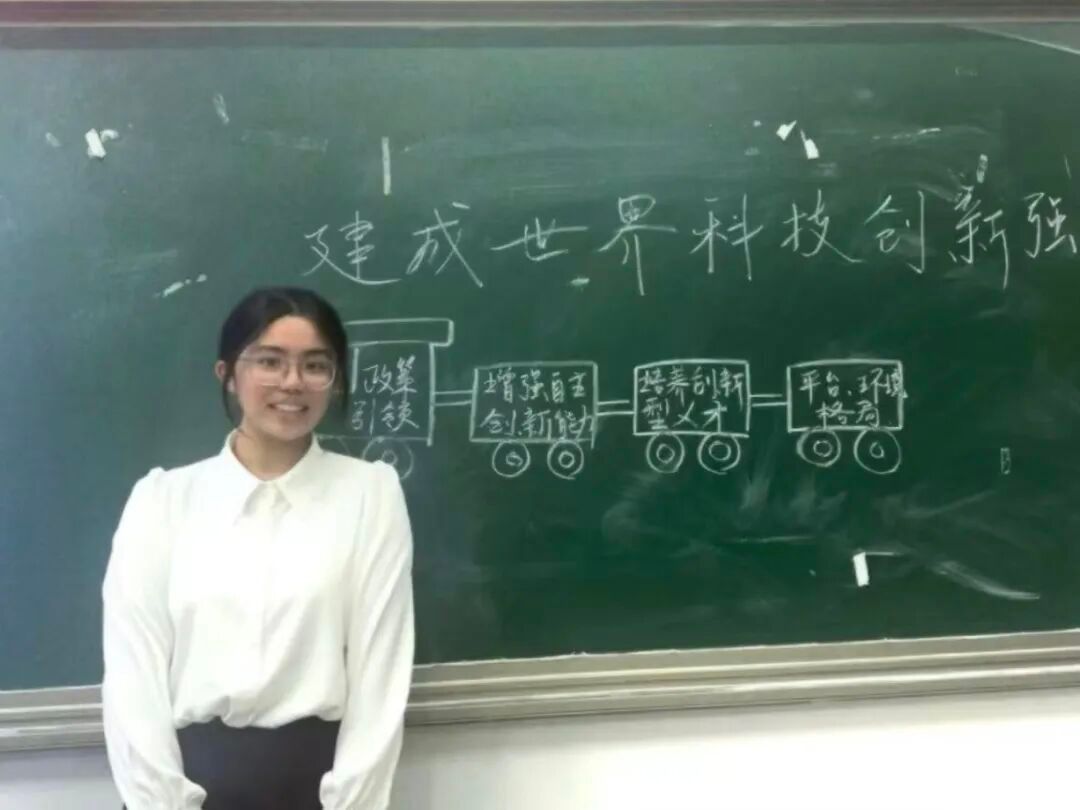 建成世界科技创新强
政策
引领
增强自主
创新能力
培养创新
型人才
平台、环境
格局